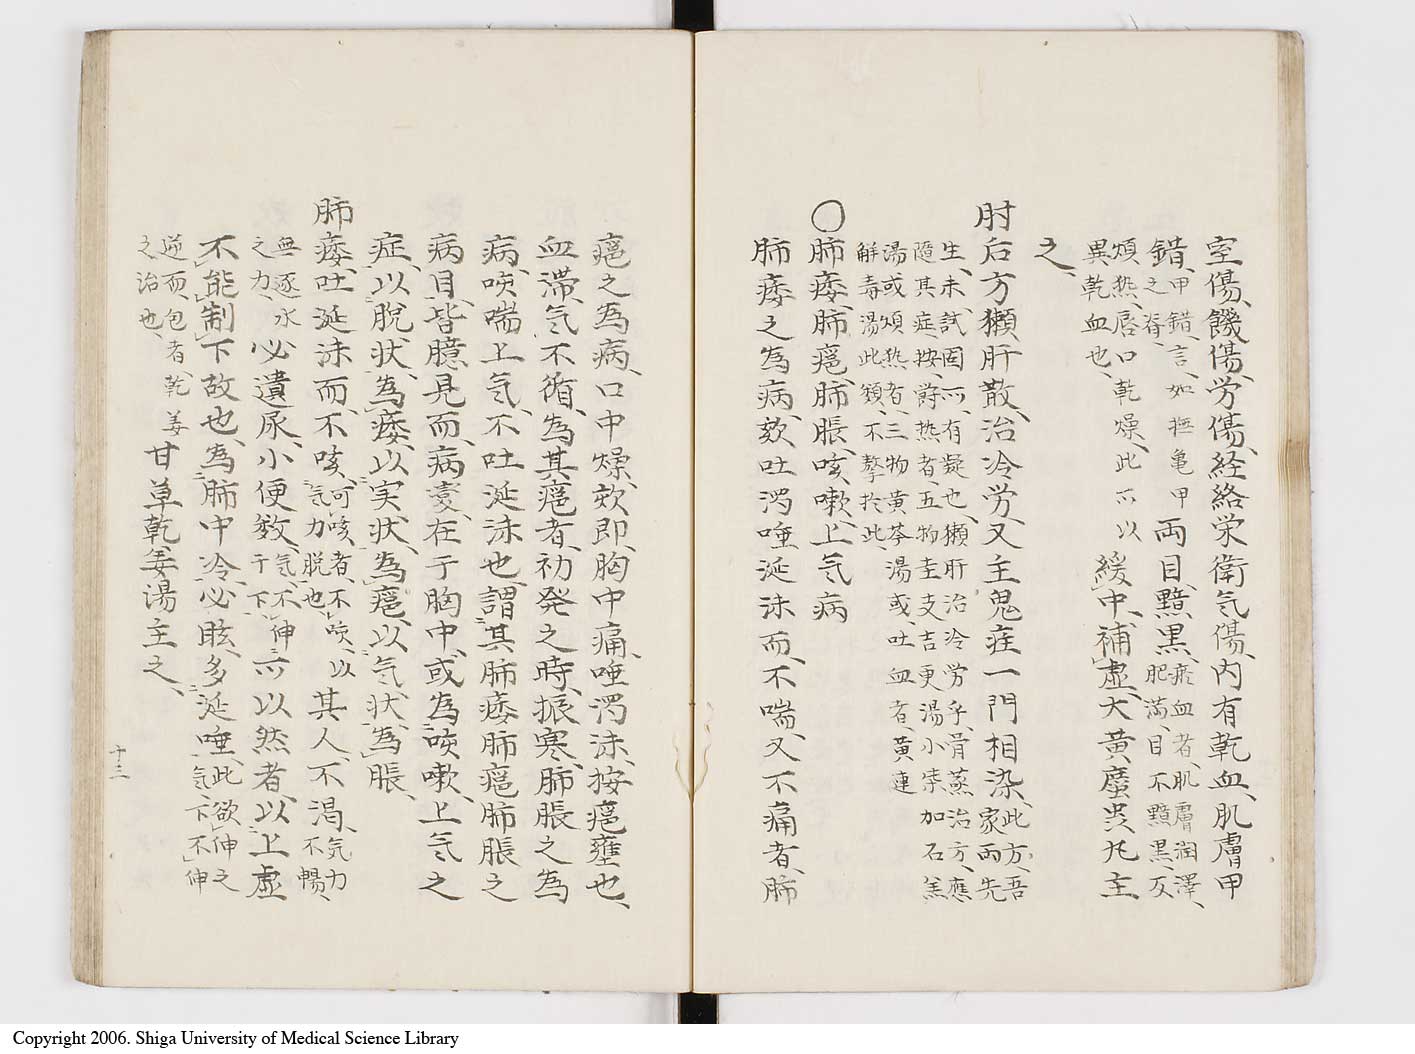 室傷、饑傷、労傷、経絡栄衛気傷、内有乾血、肌膚甲
錯、甲錯、言、如撫亀甲之脊、両目、黯黒、瘀血者、肌膚潤澤、肥満、目不黯黒、反
煩热、唇口乾燥、此所以異乾血也、緩中、補虚、大黄䗪虫丸主
之、
肘后方獺肝散、治冷労、又主鬼疰一門相染、此方、吾家両先
生、未試、固所有疑也、獺肝治冷労乎、骨蒸治方、應
隨其症、按、欝热者、五物圭支吉更湯小柴加石羔
湯或煩热者、三物黄芩湯或、吐血者、黄連
觧毒湯此類、不擧於此、
〇肺痿、肺癰、肺脹、咳嗽、上気病
肺痿之為病、欬吐濁唾涎沫而、不喘、又不痛者、肺
癰之為病、口中燥、欬即、胸中痛、唾濁沫、按癰壅也、
血滞、気不循、為其癰者、初発之時、振寒、肺脹之為
病、咳喘上気、不吐涎沫也、謂其肺痿肺癰肺脹之
病、目、皆臆見而、病変、在于胸中、或為咳嗽、上気之
症、以脱状、為痿、以実状、為癰、以気状、為脹、
肺痿、吐涎沫而、不咳、可咳者、不咳、以気力脱也、其人、不渇、気力不暢、
無逐水之力、必遺尿、小便数、気、不伸于下、所以然者、以上虚
不能制下故也、為肺中冷、必眩、多涎唾、此欲伸之気、下不伸
逆而、包者、乾姜之治也、甘草乾姜湯主之、
十三
Copyright 2006. Shiga University of Medical Science Library